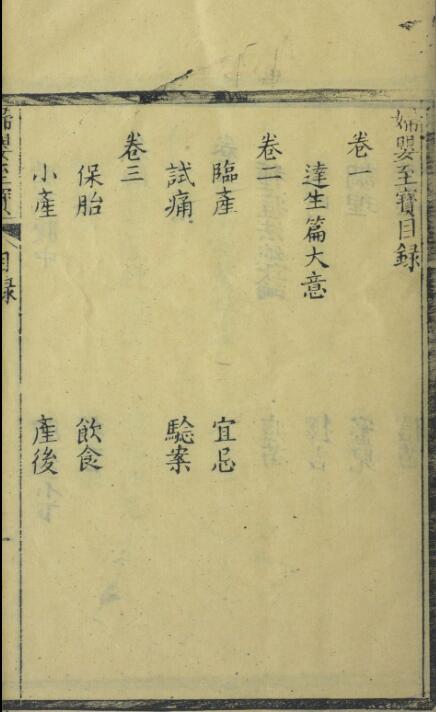 婦嬰至寶目錄
卷一
達生篇大意
卷二
臨產 宜忌
試痛 驗案
卷三
保胎 飲食
小產 產後
婦嬰至寶 目錄